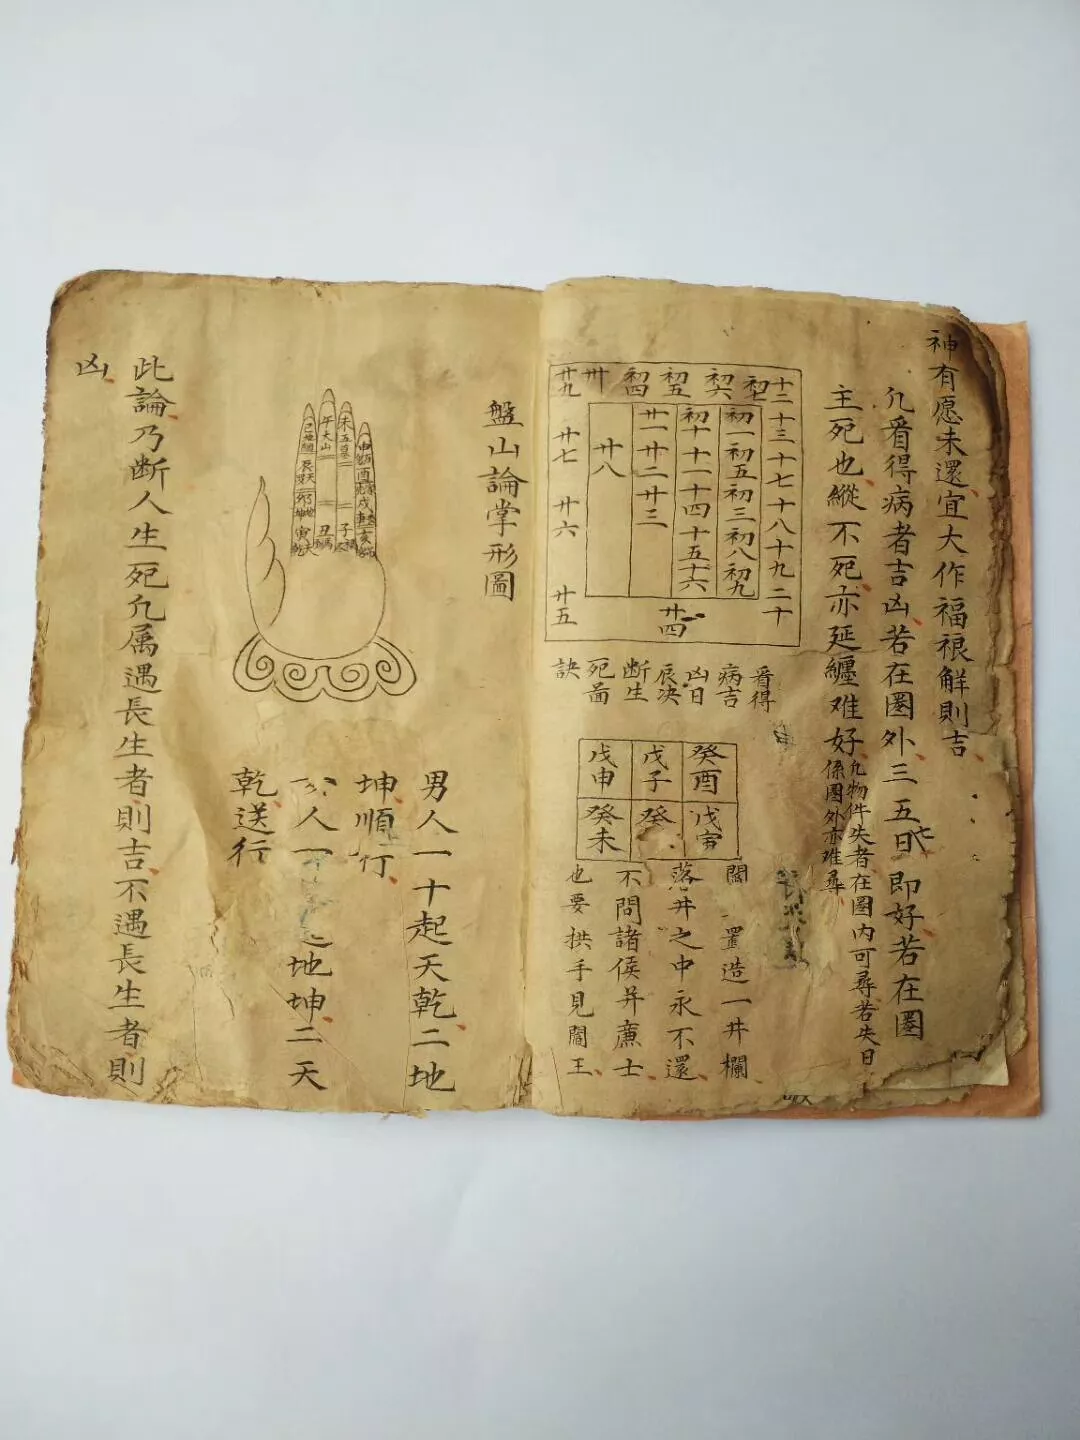 神有愿未還宜大作福祿解則吉
凢看得病者吉凶若在圏外三五七日即好若在圏
主死也縱不死亦延纏难好
凢物件失者在圏内可尋若失日
係圏外亦难尋
十二十三十七十八十九二十
初七
初六
初五
初四
卅
廿九
廿七
廿六
廿五
廿四
初一初五初三初八初九
初十十一十四十五十六
廿一廿二廿三
廿八
看得
病吉
凶日
辰决
断生
死畐
訣
癸酉
戊子
戊申
戊寅
癸
癸未
閻置造一井欄
落井之中永不還
不問諸侯并亷士
也要拱手見閻王
盤山論掌形圖
未五墓
午大山
子
丑
寅
男人一十起天乾二地
坤順行
人一地坤二天
乾送行
此論乃断人生死凢属遇長生者則吉不遇長生者則
凶